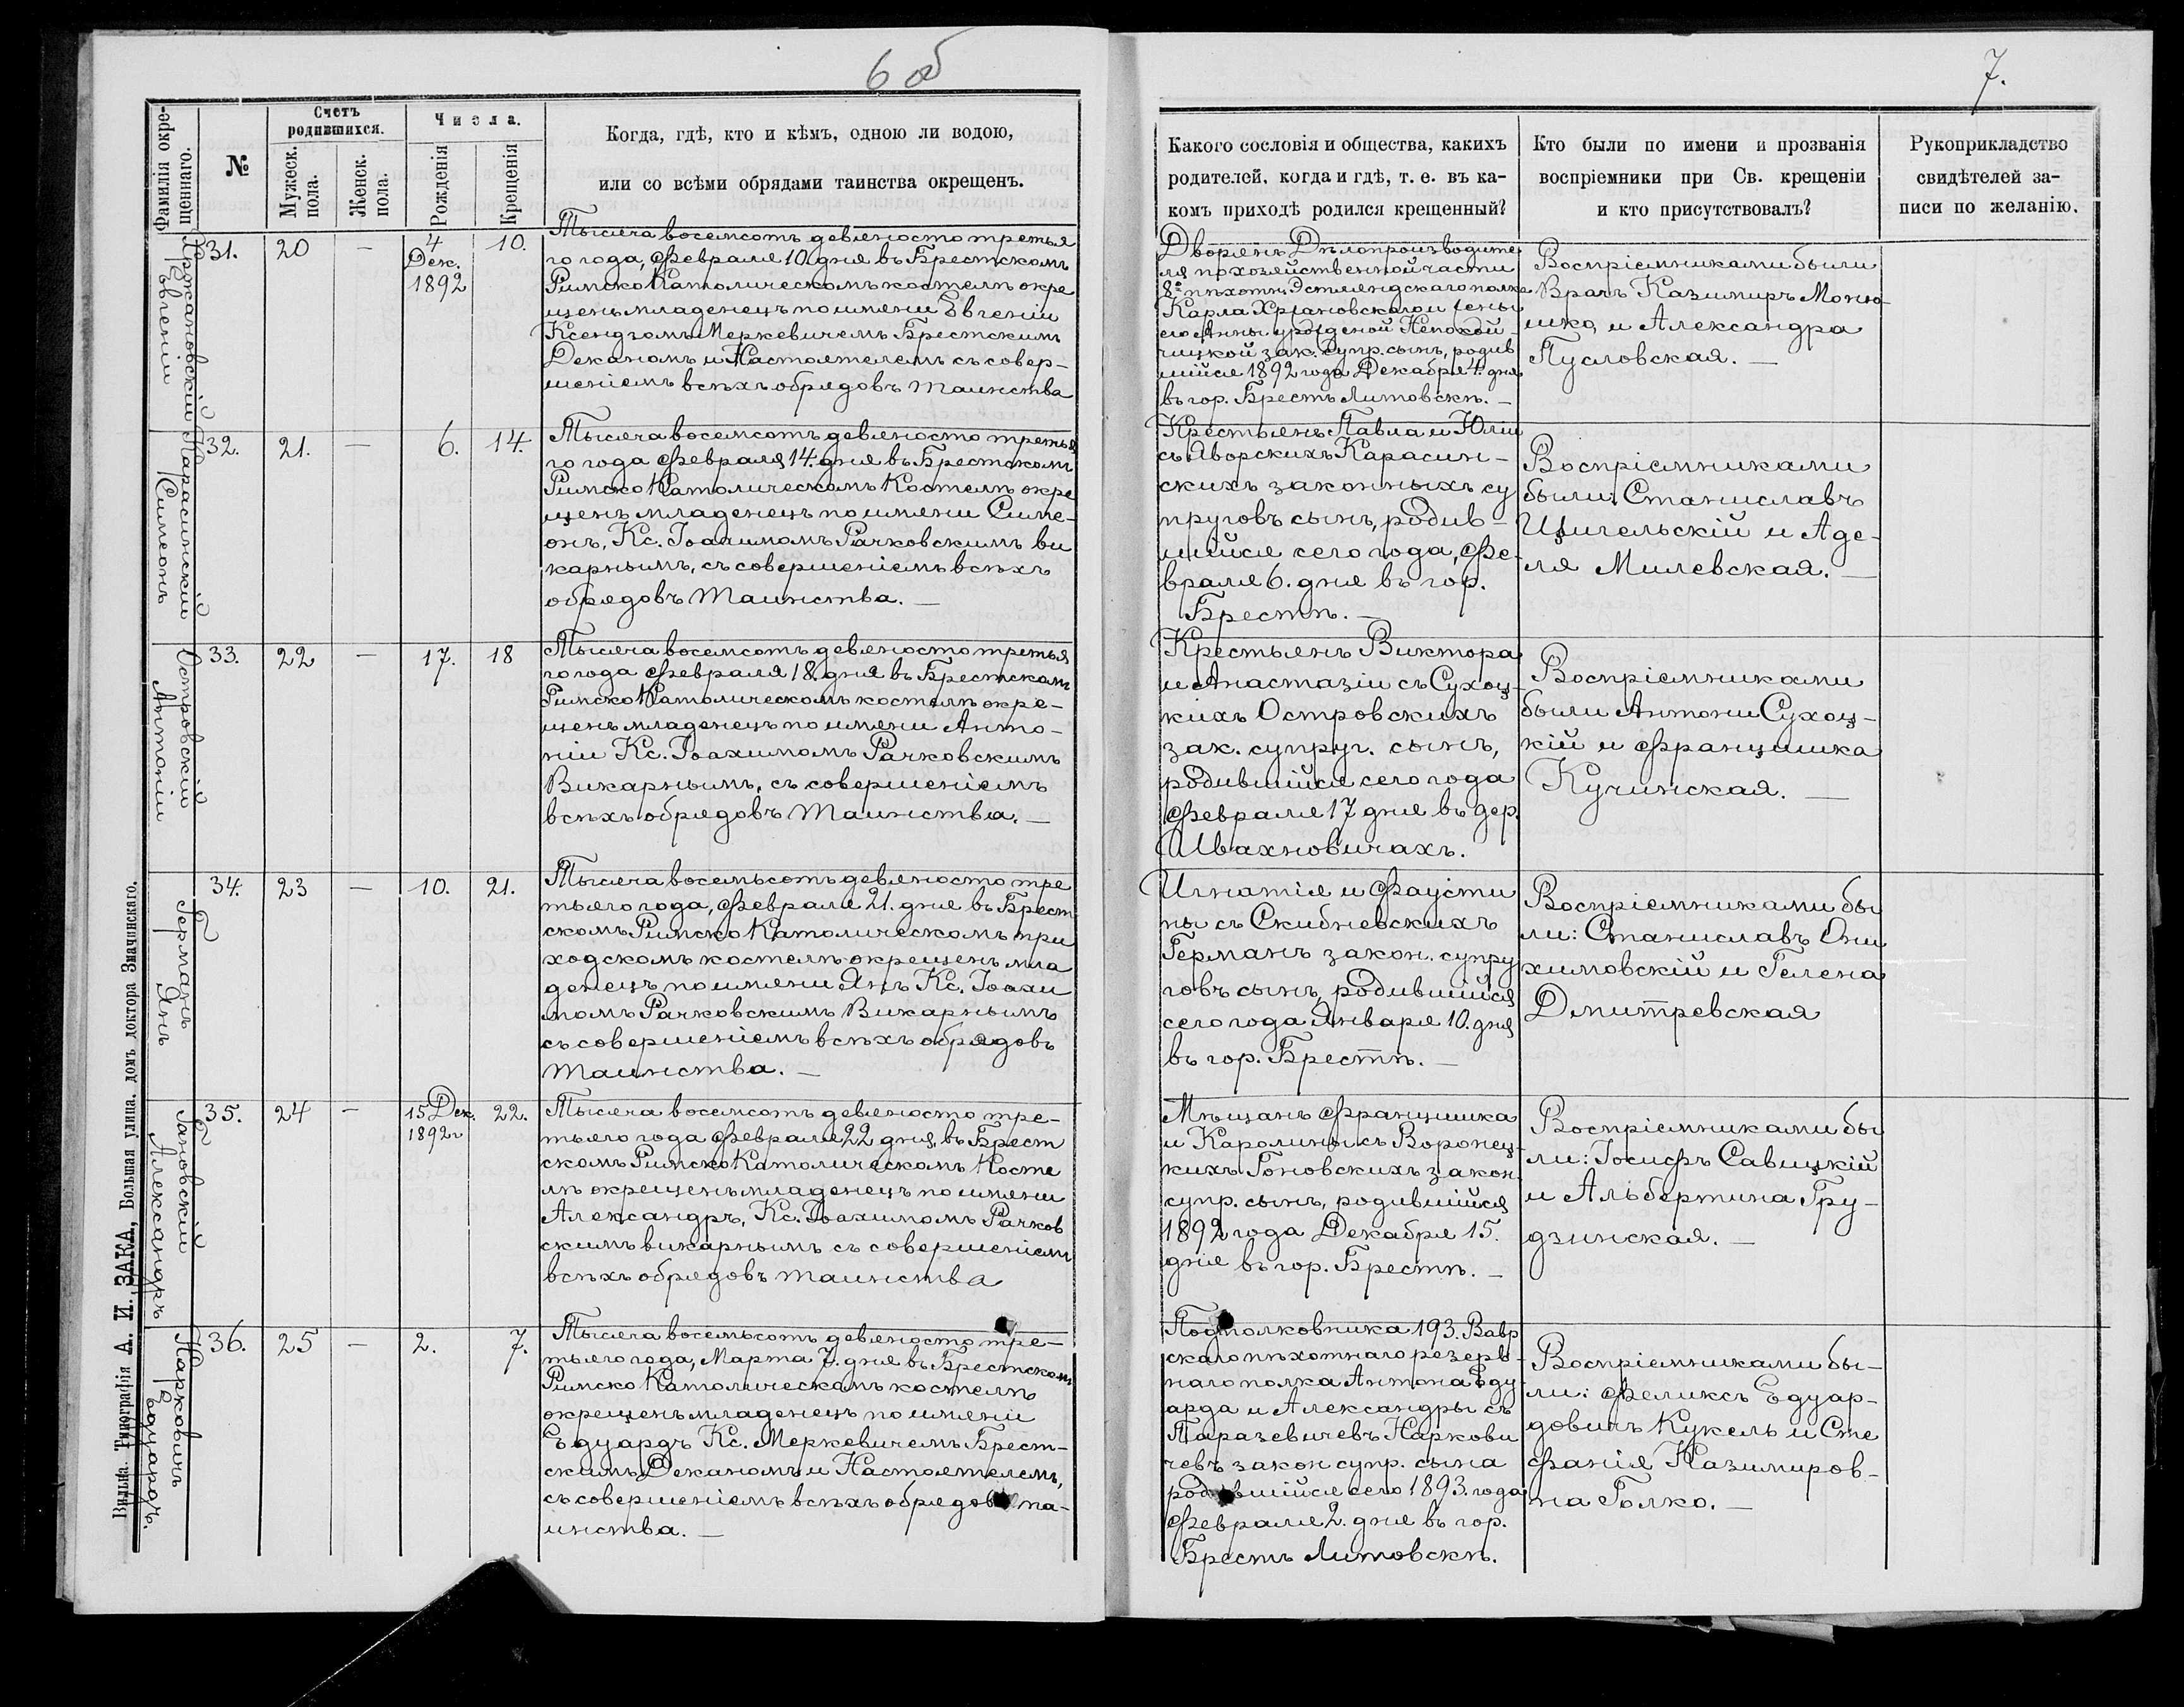 6 об
7.
Фамилія окре-
щеннаго.
№
Счетъ
родившихся.
Мужеск.
пола.
Женск.
пола.
Числа.
Рожденія
Крещенія
Когда, гдѣ, кто и кѣмъ, одною ли водою,
или со всѣми обрядами таинства окрещенъ.
Какого сословія и общества, какихъ
родителей, когда и гдѣ, т. е. въ ка-
комъ приходѣ родился крещенный?
Кто были по имени и прозванія
воспріемники при Св. крещеніи
и кто присутствовалъ?
Рукоприкладство
свидѣтелей за-
писи по желанію.
Хржановскій
Евгеній
31.
20
—
4
Дек.
1892
10.
Тысяча восемсотъ девяносто третья
го года, Февраля 10 дня въ Брестскомъ
Римско Католическомъ костелѣ окре
щенъ младенецъ по имени Евгеній
Ксендзомъ Меркевичемъ Брестскимъ
Деканомъ и Настоятелемъ съ совер-
шеніемъ всѣхъ обрядовъ таинства
Дворянъ Дѣлопроизводите
ля по хозяйственной части
8го пѣхотн. Эстляндскаго полка
Карла Хржановскаго и жены
его Анны урожденой Непокой-
чицкой зак. супр. сынъ, родив
шійся 1892 года Декабря 4. дня
въ гор. Брестъ Литовскѣ. —
Воспріемниками были
Врачъ Казимиръ Моню-
шко, и Александра
Пусловская. —
Карасинскій
Симеонъ
32.
21.
—
6.
14.
Тысяча восемсотъ девяносто третья
го года Февраля 14. дня въ Брестскомъ
Римско Католическомъ Костелѣ окре
щенъ младенецъ по имени Симе-
онъ, Кс. Іоахимомъ Рачковскимъ ви
карнымъ, съ совершеніемъ всѣхъ
обрядовъ Таинства. —
Крестьянъ Павла и Юліи
съ Яворскихъ Карасин-
скихъ законныхъ су
пруговъ сынъ, родив-
шійся сего года, Фе-
враля 6. дня въ гор.
Брестѣ. —
Воспріемниками
были: Станиславъ
Щигельскій и Аде-
ля Милевская. —
Островскій
Антоній
33.
22
—
17.
18
Тысяча восемсотъ девяносто третья
го года Февраля 18. дня въ Брестскомъ
Римско Католическомъ костелѣ окре-
щенъ младенецъ по имени Анто-
ній Кс. Іоахимомъ Рачковскимъ
Викарнымъ, съ совершеніемъ
всѣхъ обрядовъ Таинства. —
Крестьянъ Виктора
и Анастазіи съ Сухоц-
кихъ Островскихъ
зак. супруг. сынъ,
родившійся сего года
Февраля 17 дня въ дер.
Ивахновичахъ.
Воспріемниками
были Антони Сухоц-
кій и Францишка
Кучинская. —
Германъ
Янъ
34.
23
—
10.
21.
Тысяча восемьсотъ девяносто тре
тьяго года, Февраля 21. дня въ Брест
скомъ Римско Католическомъ при
ходскомъ костелѣ окрещенъ мла
денецъ по имени Янъ Кс. Іоахи
момъ Рачковскимъ Викарнымъ
съ совершеніемъ всѣхъ обрядовъ
Таинства. —
Игнатія и Фаусти
ны съ Скибневскихъ
Германъ закон. супру
говъ сынъ, родившійся
сего года Января 10. дня
въ гор. Брестѣ. —
Воспріемниками бы
ли: Станиславъ Они
химовскій и Гелена
Дмитревская
Гоновскій
Александръ
35.
24
—
15 Дек.
1892 г
22.
Тысяча восемсотъ девяносто тре-
тьяго года Февраля 22 дня, въ Брест
скомъ Римско Католическомъ Косте
лѣ окрещенъ младенецъ по имени
Александръ, Кс. Іоахимомъ Рачков
скимъ викарнымъ съ совершеніемъ
всѣхъ обрядовъ таинства
Мѣщанъ Францишка
и Каролины съ Воронец-
кихъ Гоновскихъ закон.
супр. сынъ, родившійся
1892 года Декабря 15.
дня въ гор. Брестѣ. —
Воспріемниками бы
ли: Іосифъ Савицкій
и Альбертина Гру-
дзинская. —
Наркович
Едуардъ.
36.
25
—
2.
7.
Тысяча восемьсотъ девяносто тре-
тьяго года, Марта 7. дня въ Брестскомъ
Римско Католическомъ костелѣ
окрещенъ младенецъ по имени
Едуардъ Кс. Меркевичемъ Брест-
скимъ Деканомъ и Настоятелемъ,
съ совершеніемъ всѣхъ обрядовъ та-
инства. —
Подполковника 193. Вавр
скаго пѣхотнаго резерв-
наго полка Антона Еду
арда и Александры съ
Паразевичевъ Наркови
чевъ закон супр. сына
родившійся сего 1893. года
Февраля 2. дня въ гор.
Брестъ Литовскѣ.
Воспріемниками бы-
ли: Феликсъ Едуар-
довичъ Кукель и Сте
фанія Казимиров-
на Голко. —
Вильна. Типографія А. И. ЗАКА, Большая улица, домъ доктора Змачинскаго.